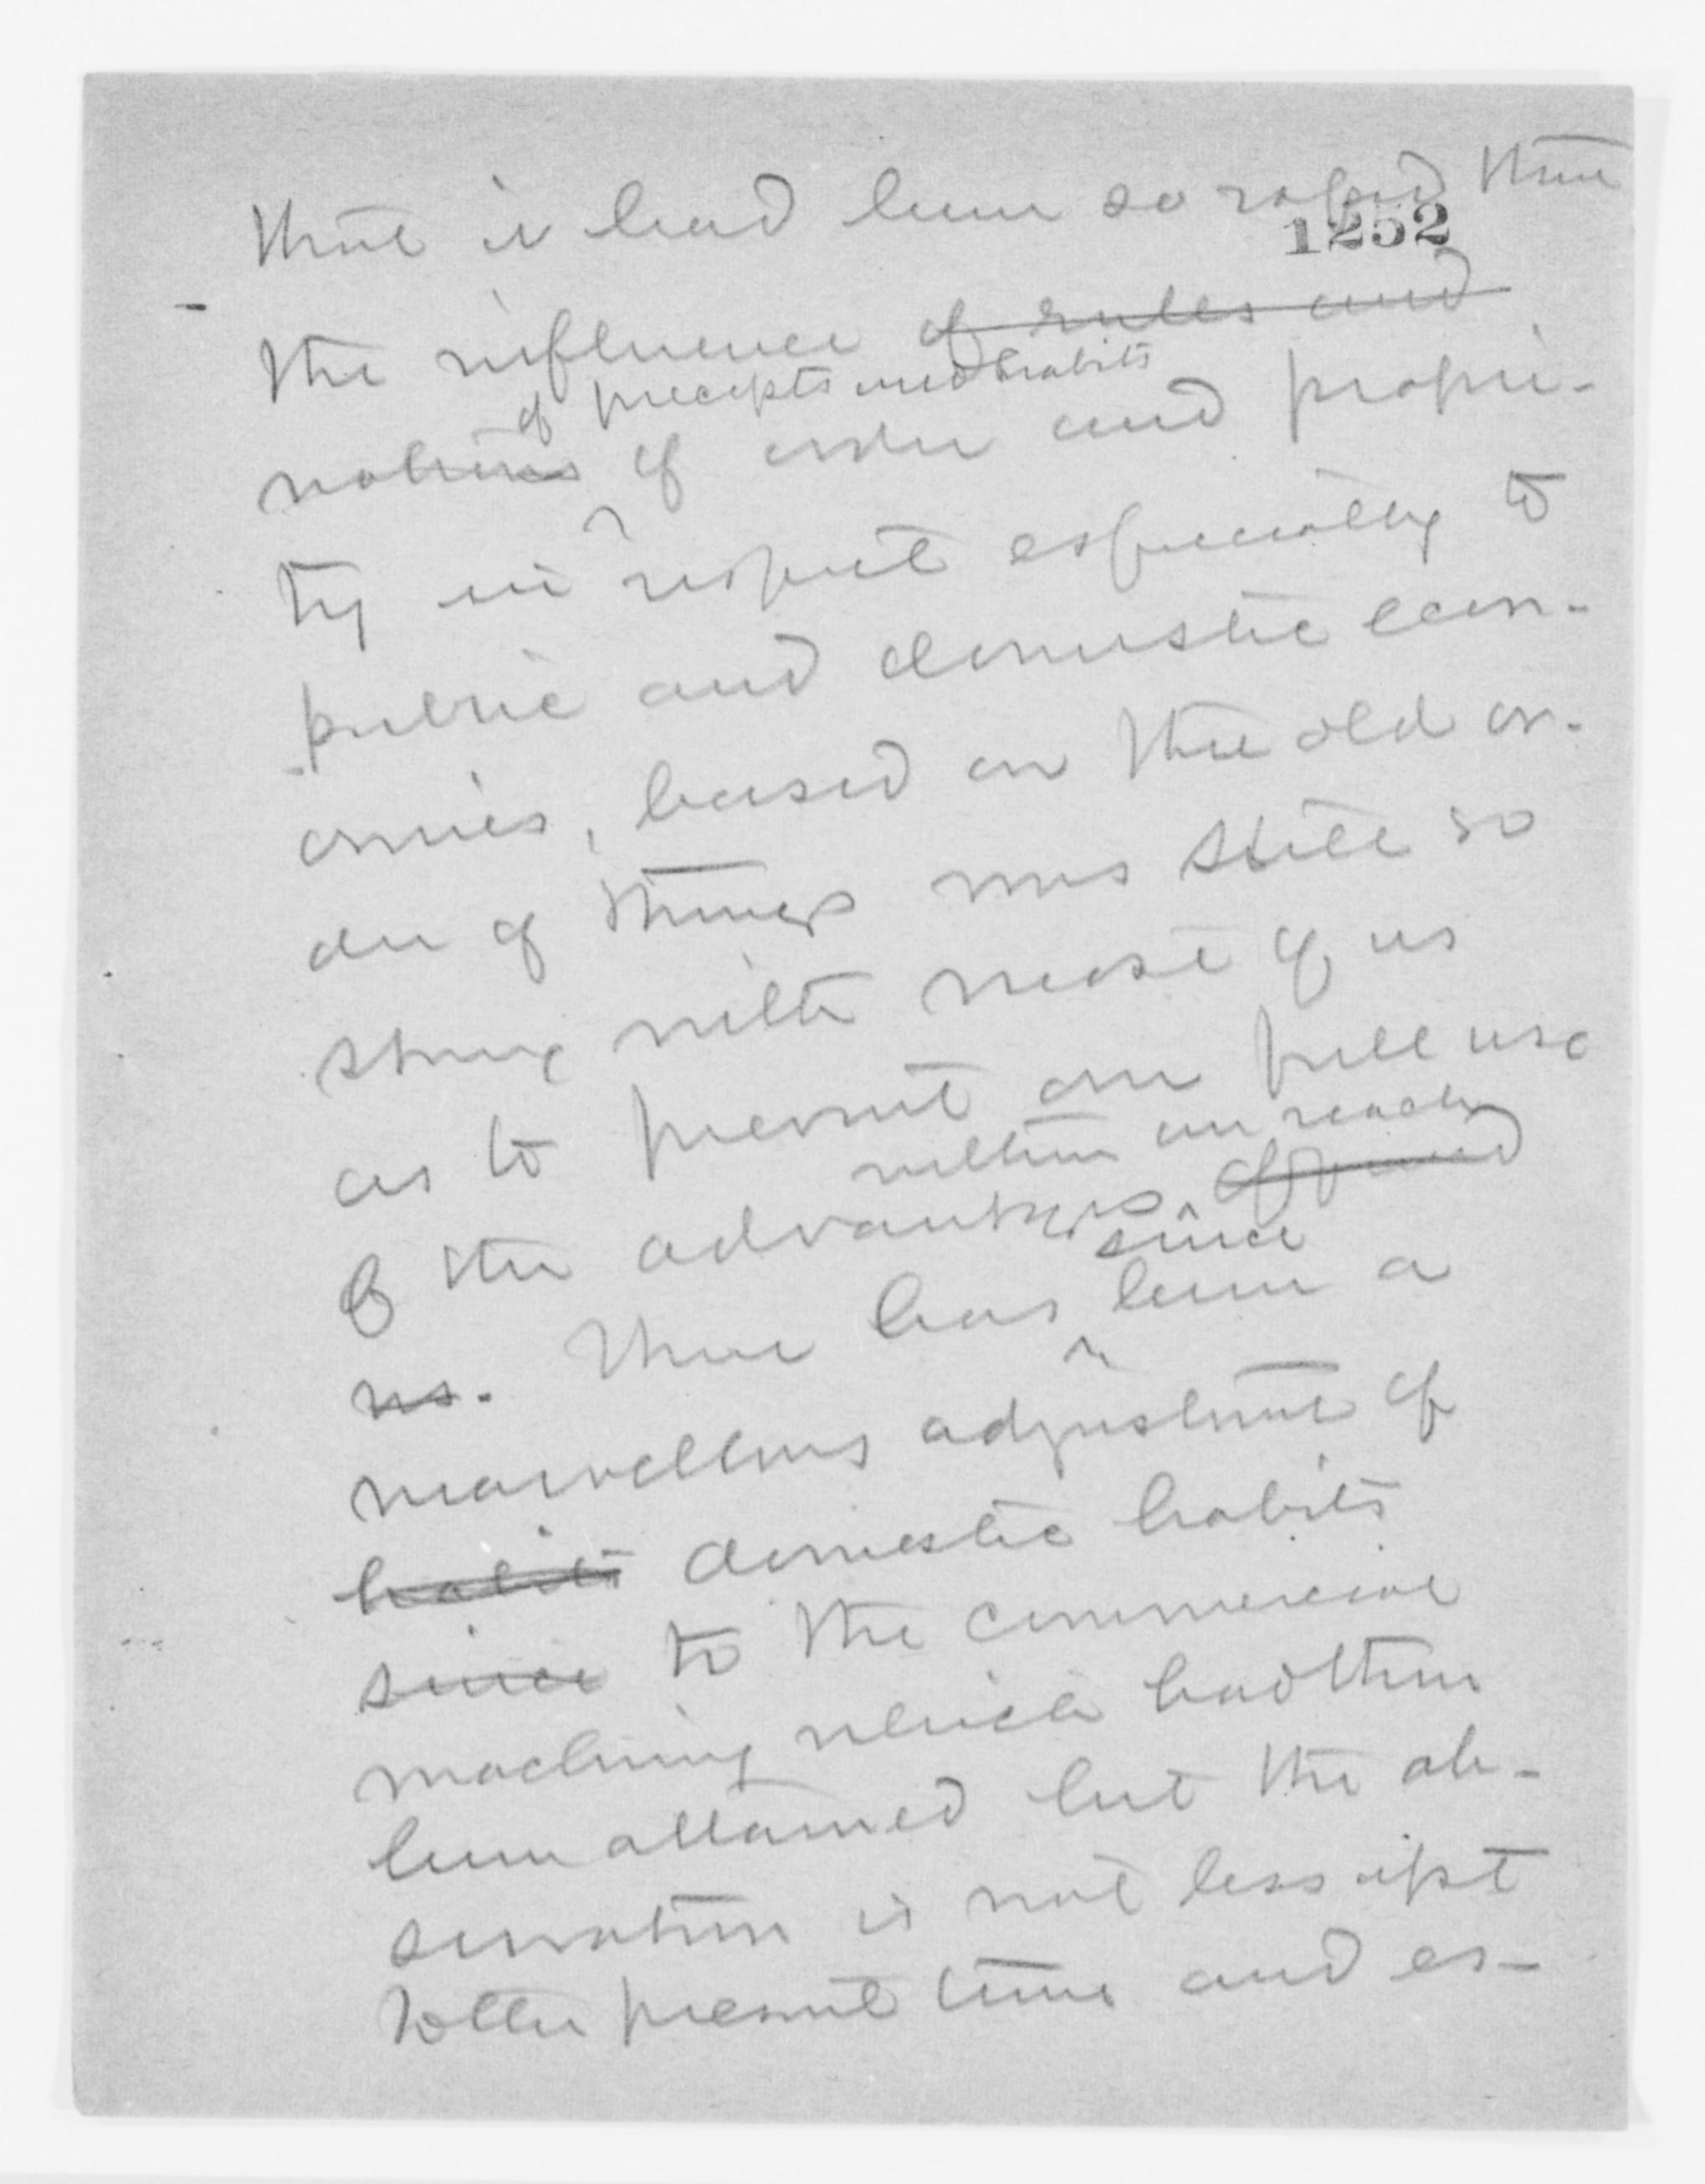 that it had been so rapid that
1252
the influence of rules and
of precepts and habits
notions of order and proprie-
ty in respect especially to
public and domestic econ-
omies, based on the old or-
der of things was still so
strong with most of us
as to prevent our full use
within our reach
of the advantages offered
since
us. There has been a
marvellous adjustment of
habits domestic habits
since to the commercial
machinery which had then
been attained but the ob-
servation is not less apt
to the present time and es-